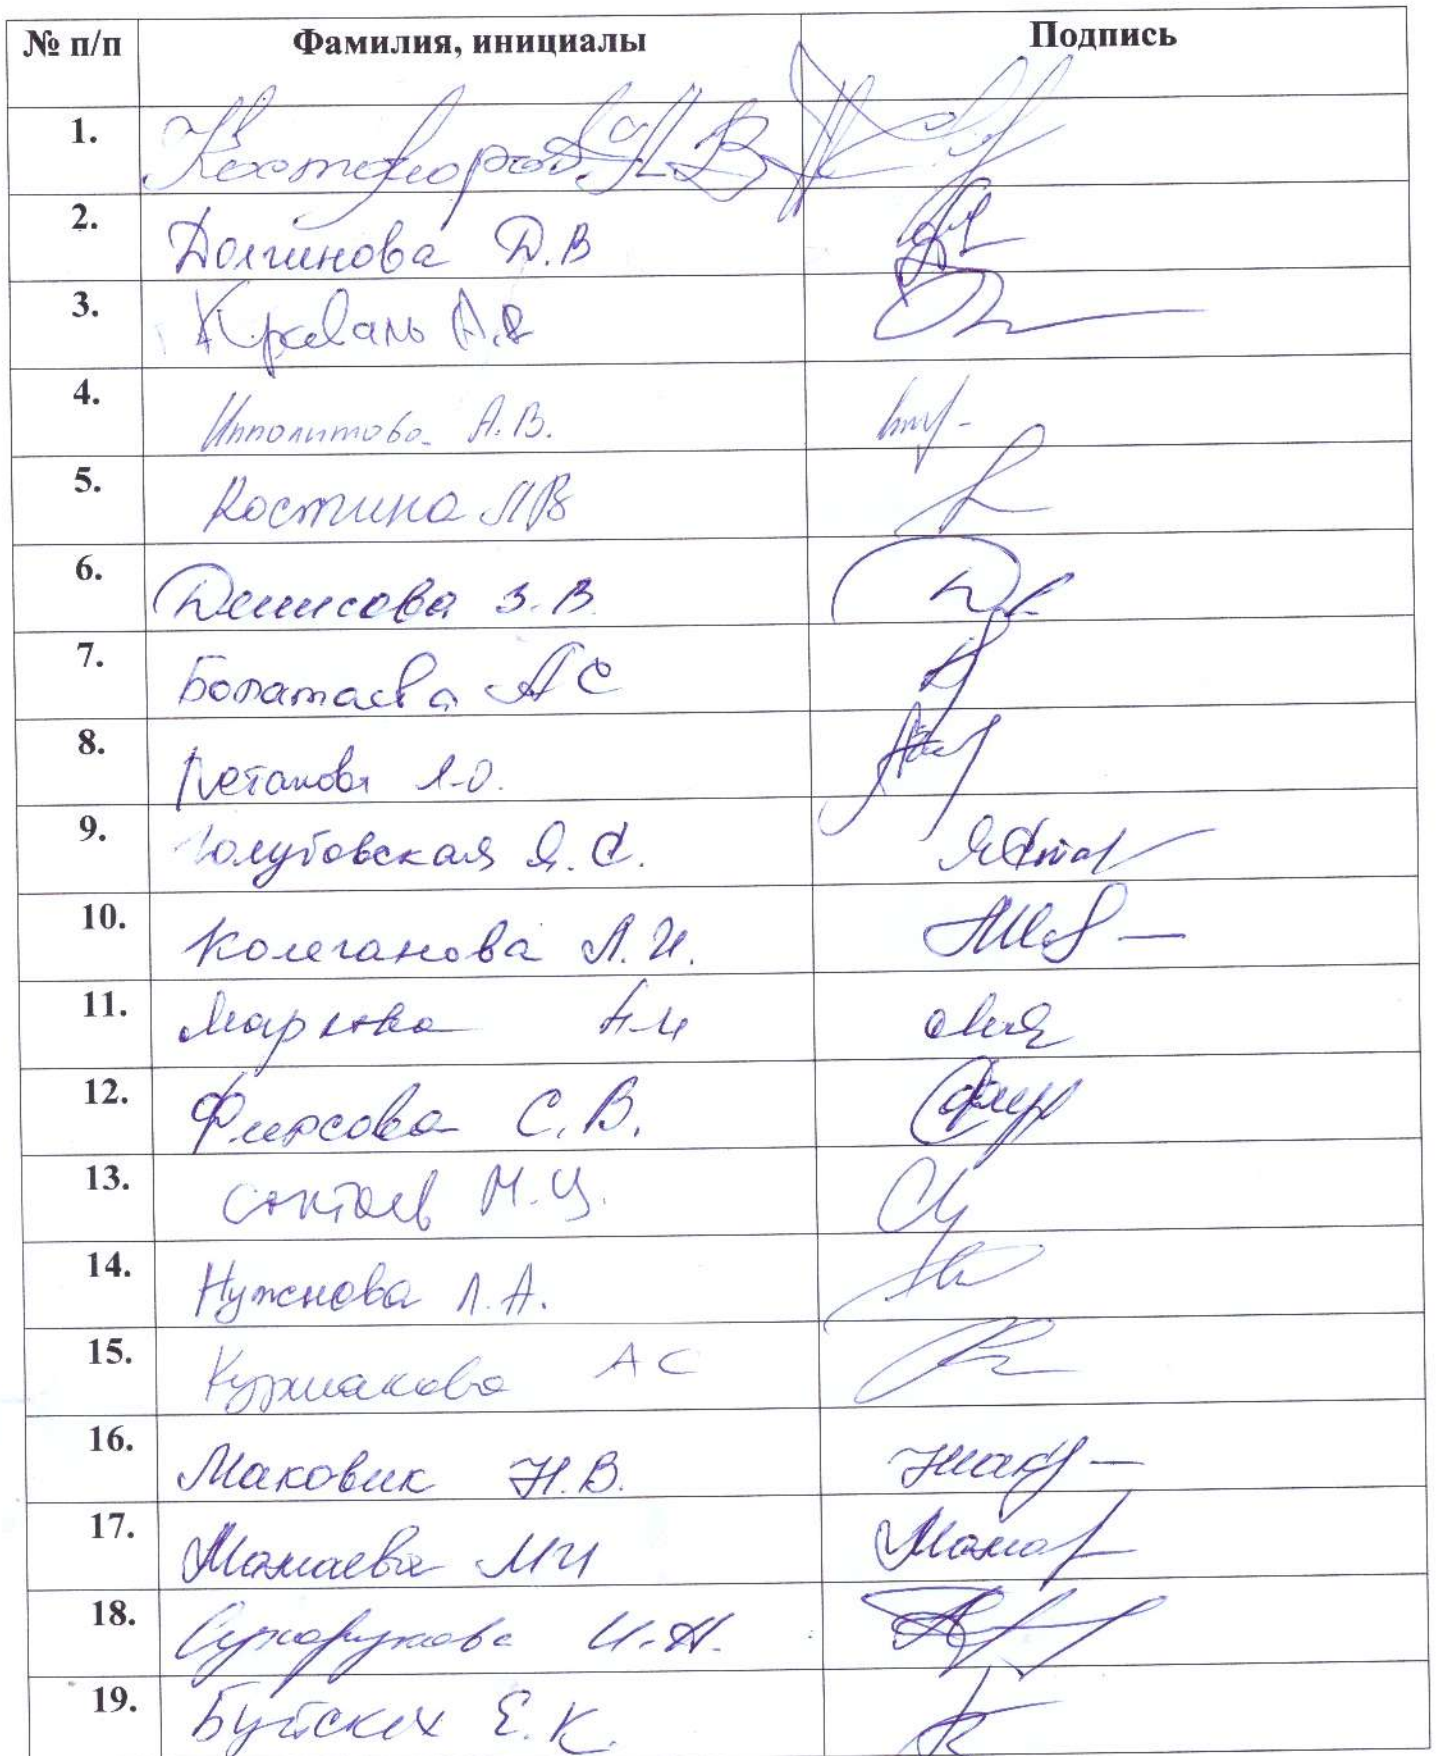 № п/п Фамилия, инициалы Подпись
1.
2. Долгинова Д.В
3. Кроваль А.В
4. Ипполитова А.В.
5. Костина Л В
6. Денисова З.В.
7. Болатаева А С
8.
9. Голубовская Я.С.
10. Колеганова Л.И.
11. Маркова Н.И
12. Фирсова С.В.
13. М.Ц.
14. Нужнова Л.А.
15. А С
16. Маковик Н.В.
17. Мамаева М И
18. Сухорукова И.Н.
19. Буйских Е.К.